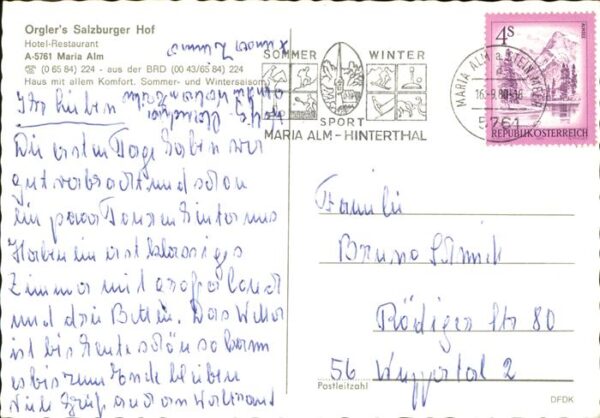 Orgler's Salzburger Hof
Hotel-Restaurant
A-5761 Maria Alm
☎ (0 65 84) 224 - aus der BRD (00 43/65 84) 224
Haus mit allem Komfort, Sommer- und Wintersaison
Ihr lieben
Die ersten Tage haben wir
gut verbracht und schon
ein paar Touren hinter uns
Haben ein erstklassiges
Zimmer mit
und drei Betten. Das Wetter
ist bis heute schön so kann
es bis zum Ende bleiben
Viele Grüße
SOMMER WINTER
SPORT
MARIA ALM - HINTERTHAL
MARIA ALM a. STEIN. MEER
16.-9.80-16
5761
4S
ALMSEE
REPUBLIK ÖSTERREICH
Familie
Bruno Schmick
Rödiger Str 80
56 Wuppertal 2
Postleitzahl
DFDK